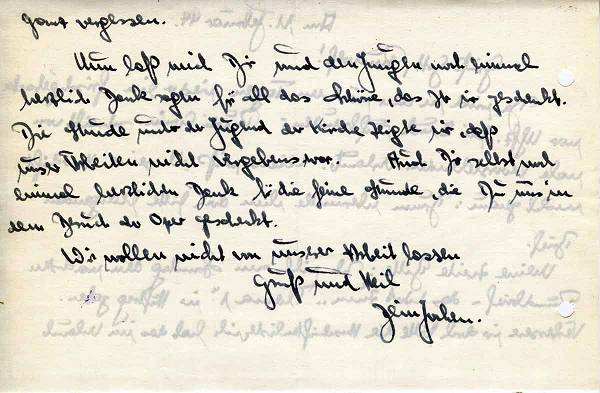 ganz vergessen.
Nun laß mich Dir und den Jungen noch einmal
herzlich Dank sagen für all das Schöne, das Ihr mir geschenkt.
Die Stunde unter der Jugend der Kirche zeigte mir, daß
unser Arbeiten nicht vergebens war. Auch Dir selbst noch
einmal herzlichen Dank für die feine Stunde, die Du uns in
dem Besuch der Oper geschenkt.
Wir wollen nicht von unserer Arbeit lassen
Gruß und Heil
Dein